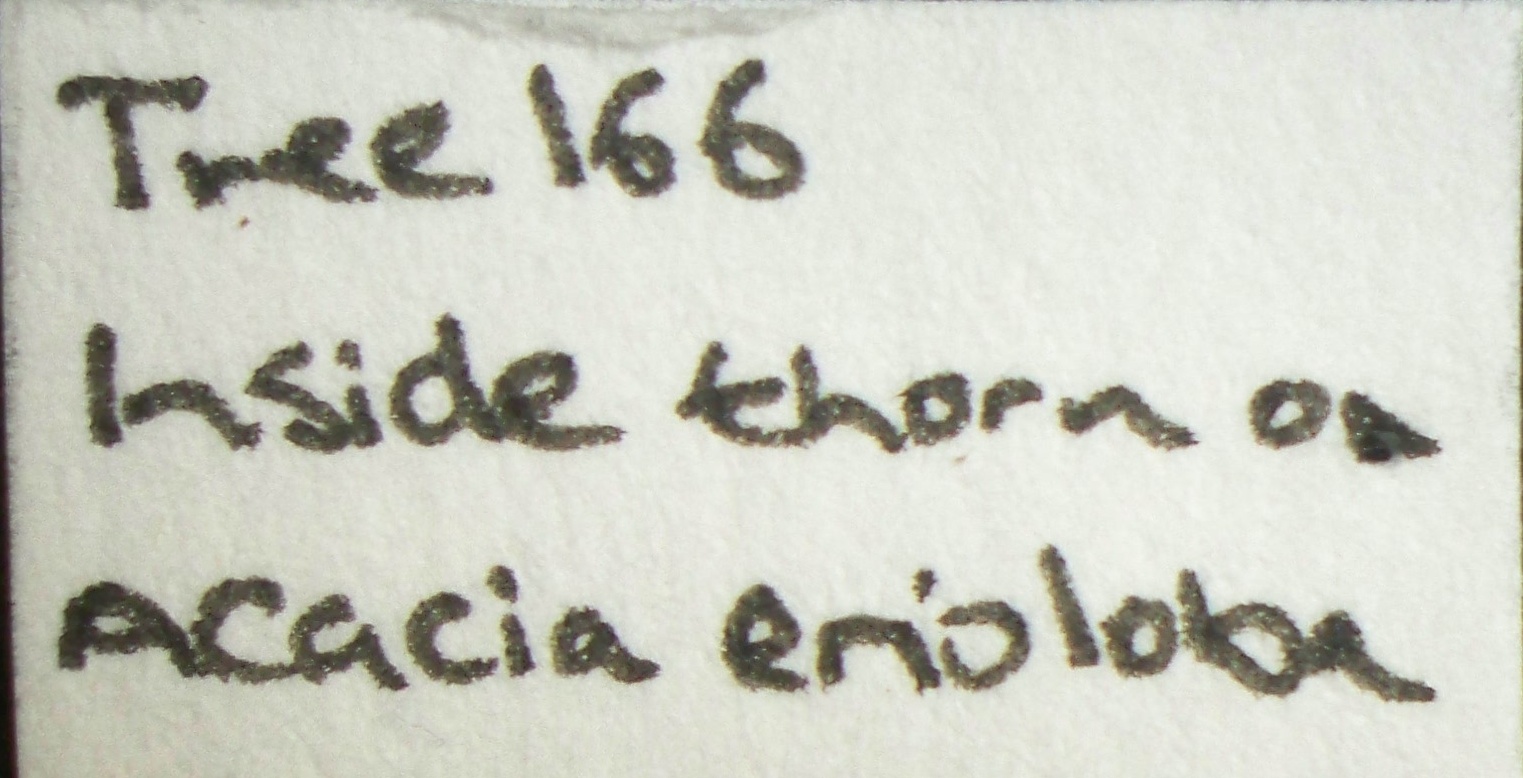 Tree 166
Inside thorn on
Acacia erioloba